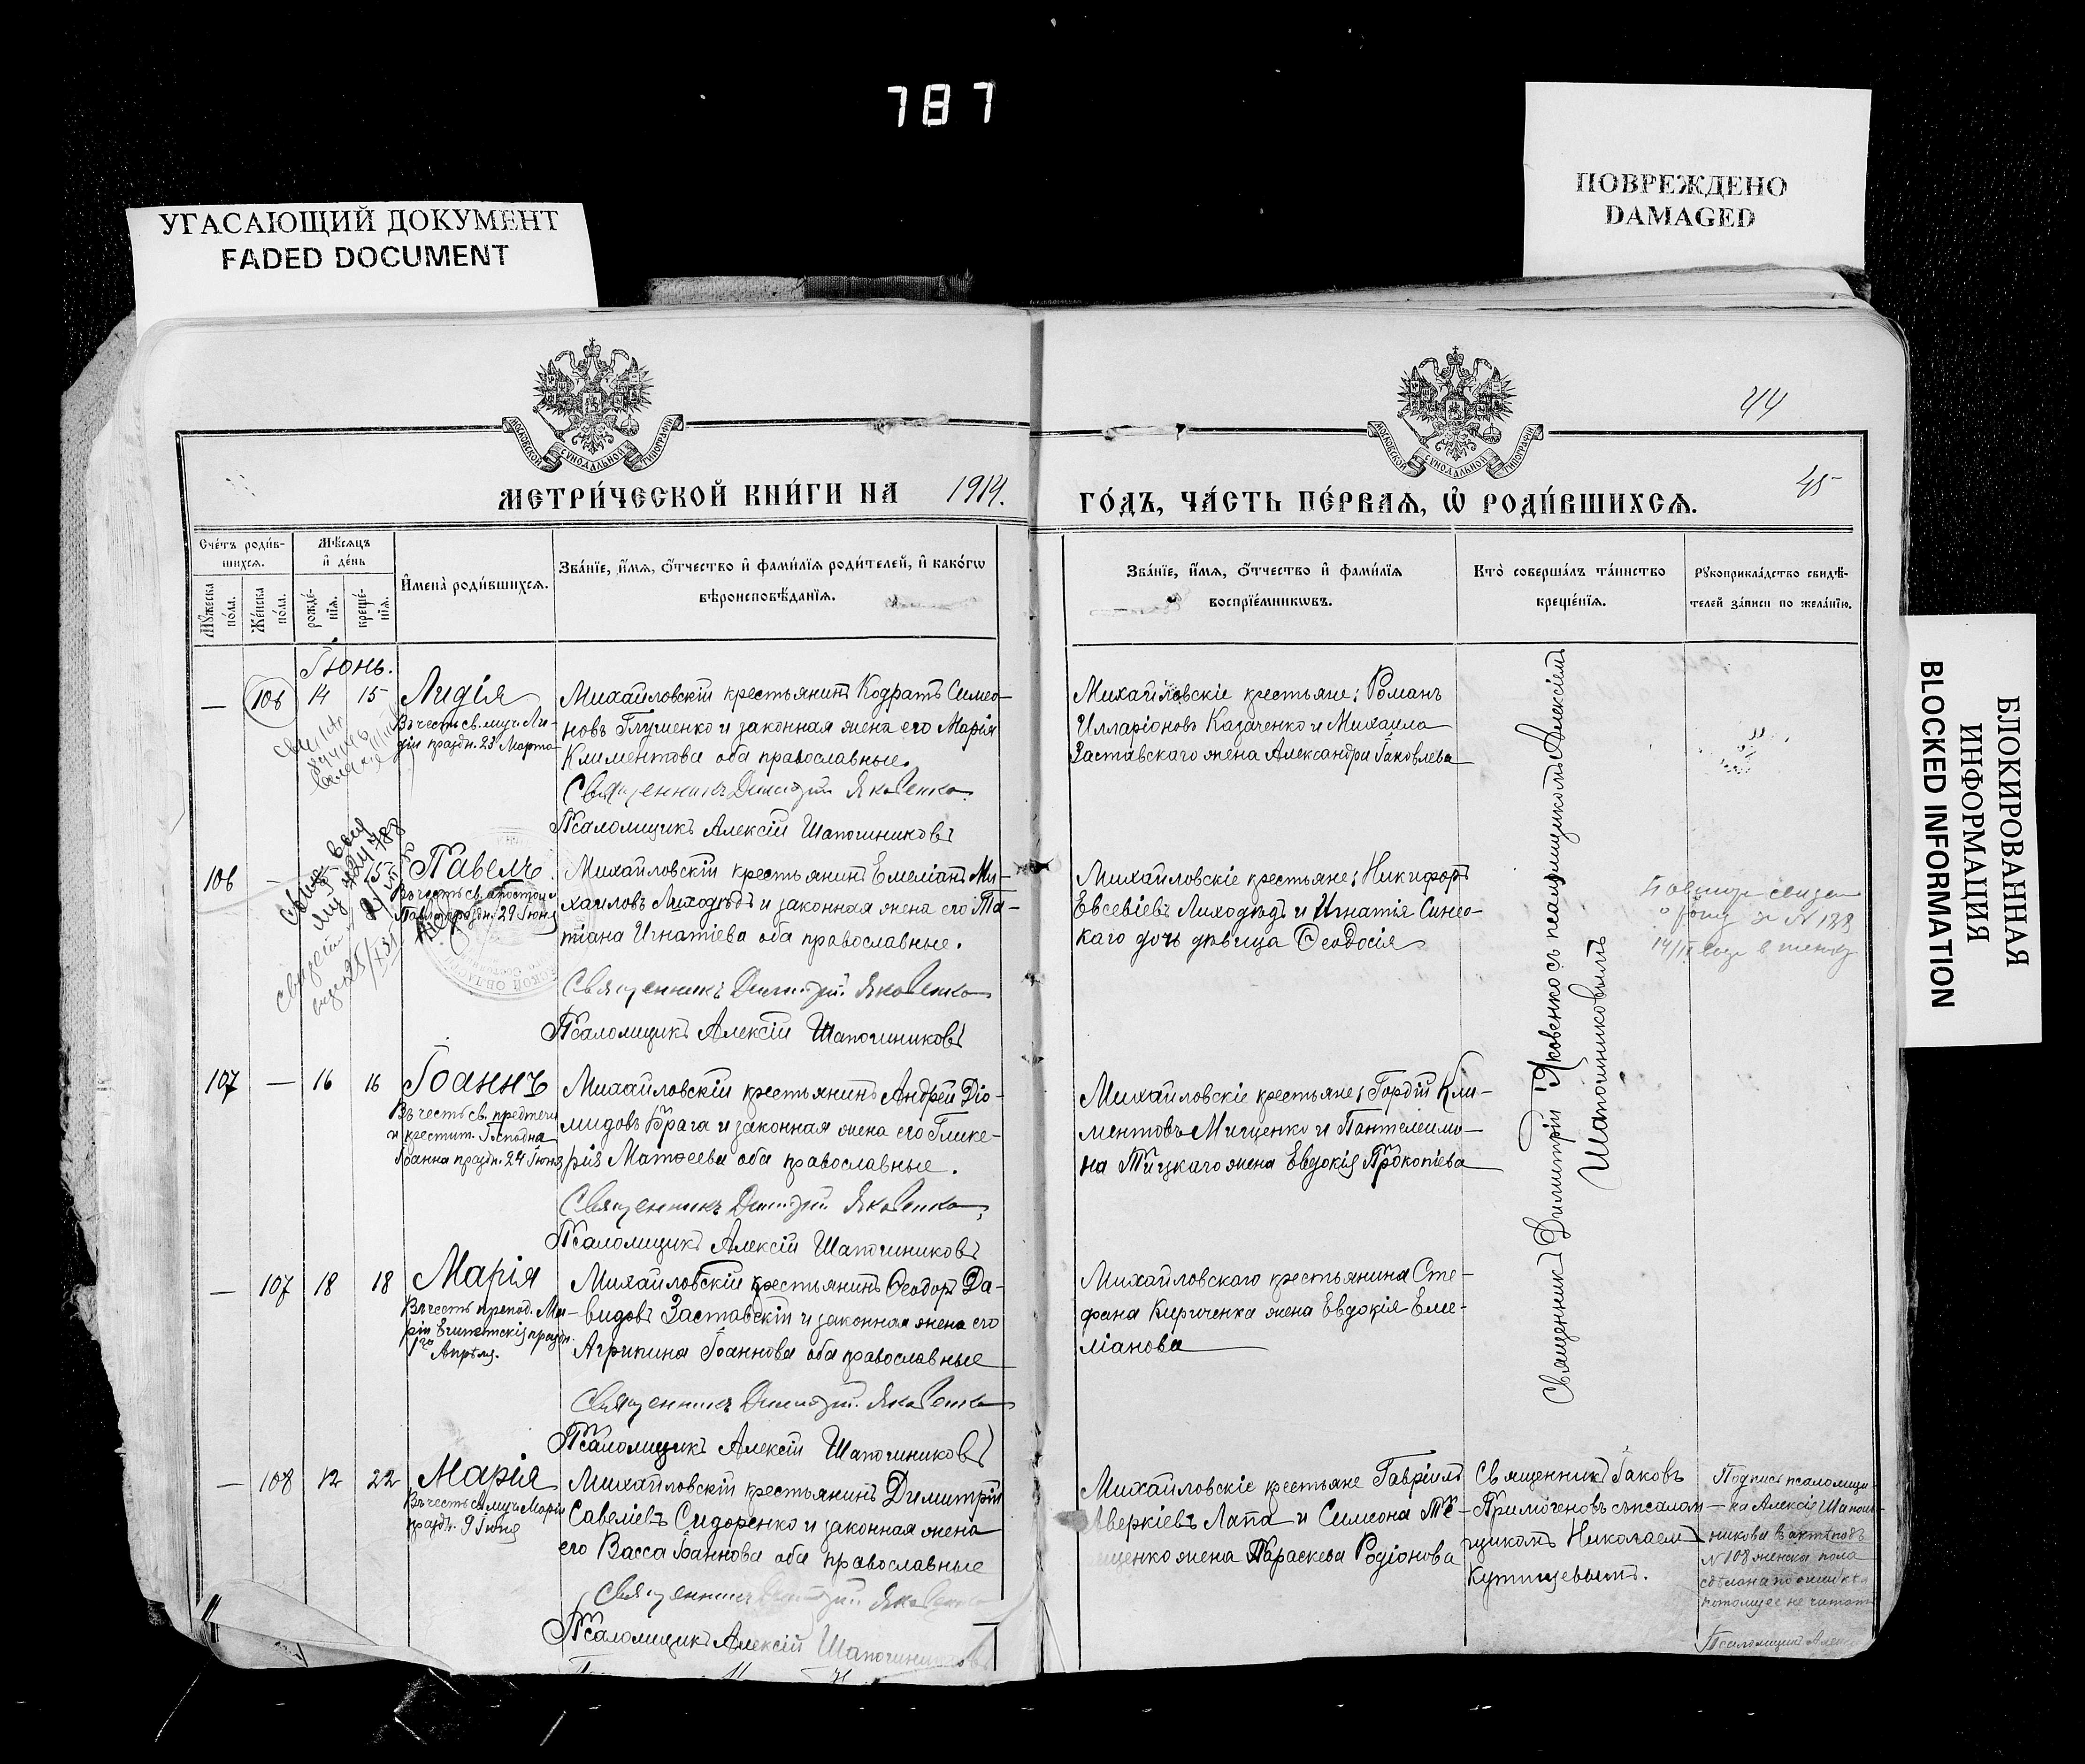 787
УГАСАЮЩИЙ ДОКУМЕНТ
FADED DOCUMENT
ПОВРЕЖДЕНО
DAMAGED
БЛОКИРОВАННАЯ
ИНФОРМАЦИЯ
BLOCKED INFORMATION
МОСКОВСКОЙ СѴНОДАЛЬНОЙ ТИПОГРАФІИ
МОСКОВСКОЙ СѴНОДАЛЬНОЙ ТИПОГРАФІИ
44
45
МЕТРИ́ЧЕСКОЙ КНИ́ГИ НА 1914.
ГО́ДЪ, ЧА́СТЬ ПЕ́РВАѦ, Ѡ҆ РОДИ́ВШИХСѦ.
Сче́тъ роди́в-
шихсѧ.
Мꙋ́жеска по́ла.
Же́нска по́ла.
Мѣ́сѧцъ и҆ де́нь
рожде́-нїѧ.
креще́-нїѧ.
И҆мена̀ роди́вшихсѧ.
Зва́нїе, и҆́мѧ, ѻ҆́тчество и҆ фами́лїѧ роди́телей, и҆ како́гѡ
вѣроисповѣ́данїѧ.
Зва́нїе, и҆́мѧ, ѻ҆́тчество и҆ фами́лїѧ
воспрїе́мникѡвъ.
Кто̀ соверша́лъ та́инство
креще́нїѧ.
Рꙋкоприкла́дство свидѣ́-
телей за́писи по жела́нїю.
Іюнь.
— 106 14 15 Лидія
Въ честь св. муч. Ли-
діи праздн. 23 Марта
Михайловскій крестьянинъ Кодратъ Симео-
новъ Глушенко и законная жена его Марія
Климентова оба православные.
Священникъ Димитрій Яковенко.
Псаломщикъ Алексій Шапошниковъ
Михайловскіе крестьяне: Романъ
Илларіоновъ Казаченко и Михаила
Заставскаго жена Александра Іаковлева
106 — 15 Павелъ.
Въ честь св. апостола
Павла праздн. 29 Іюня
Михайловскій крестьянинъ Емеліанъ Ми-
хаиловъ Лиходѣдъ и законная жена его Та-
тіана Игнатіева оба православные.
Священникъ Димитрій Яковенко
Псаломщикъ Алексій Шапошниковъ
Михайловскіе крестьяне: Никифоръ
Евсевіевъ Лиходѣдъ и Игнатія Синео-
каго дочь дѣвица Ѳеодосія
107 — 16 16 Іоаннъ
Въ честь св. предтечи
и крестит. Господня
Іоанна праздн. 24 Іюня
Михайловскій крестьянинъ Андрей Діо-
мидовъ Брага и законная жена его Глике-
рія Матѳеева оба православные.
Священникъ Димитрій Яковенко
Псаломщикъ Алексій Шапошниковъ
Михайловскіе крестьяне: Гордій Кли-
ментовъ Мищенко и Пантелеимо-
на Тицкаго жена Евдокія Прокопіева
— 107 18 18 Марія
Въ честь препод. Ма-
ріи Египетскія праздн.
1го Апрѣля.
Михайловскій крестьянинъ Ѳеодоръ Да-
видовъ Заставскій и законная жена его
Агрипина Іоаннова оба православные
Священникъ Димитрій Яковенко
Псаломщикъ Алексій Шапошниковъ
Михайловскаго крестьянина Сте-
фана Кириченка жена Евдокія Еме-
ліанова
Священникъ Димитрій Яковенко съ псаломщикомъ Алексіемъ
Шапошниковымъ
— 108 12 22 Марія
Въ честь св. муч. Маріи
праздн. 9 Іюня
Михайловскій крестьянинъ Димитрій
Савеліевъ Сидоренко и законная жена
его Васса Іоаннова оба православные
Священникъ Димитрій Яковенко
Псаломщикъ Алексій Шапошниковъ
Михайловскіе крестьяне Гавріилъ
Аверкіевъ Лапа и Симеона
жена Параскева Родіонова
Священникъ Іаковъ
съ псалом-
щикомъ Николаемъ
Подпись псаломщи-
ка Алексія Шапош-
никова въ
№ 108 женска пола
сдѣлана по ошибкѣ
потому ее не читать
Псаломщикъ